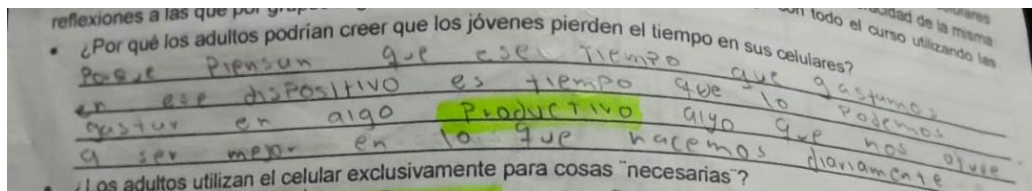 reflexiones a las que por
con todo el curso utilizando las
• ¿Por qué los adultos podrían creer que los jóvenes pierden el tiempo en sus celulares?
Porque Piensan que ese Tiempo que gastamos
en ese disPositivo es tiempo que lo Podemos
gastar en algo ProducTivo algo que nos ayude
a ser mejor en lo que hacemos diariamente
¿Los adultos utilizan el celular exclusivamente para cosas ¨necesarias¨?